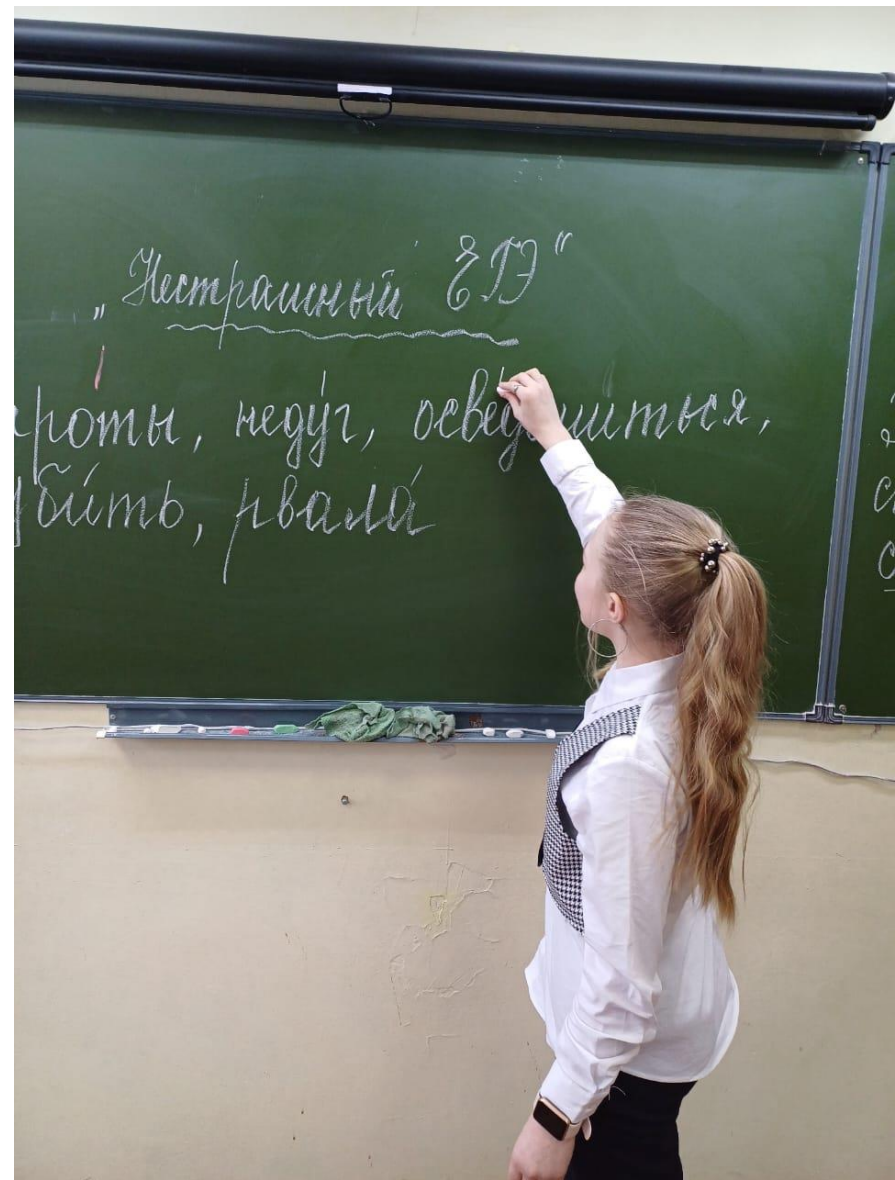 „Нестрашный ЕГЭ“
роты, неду́г, осве́домиться,
уби́ть, рвала́